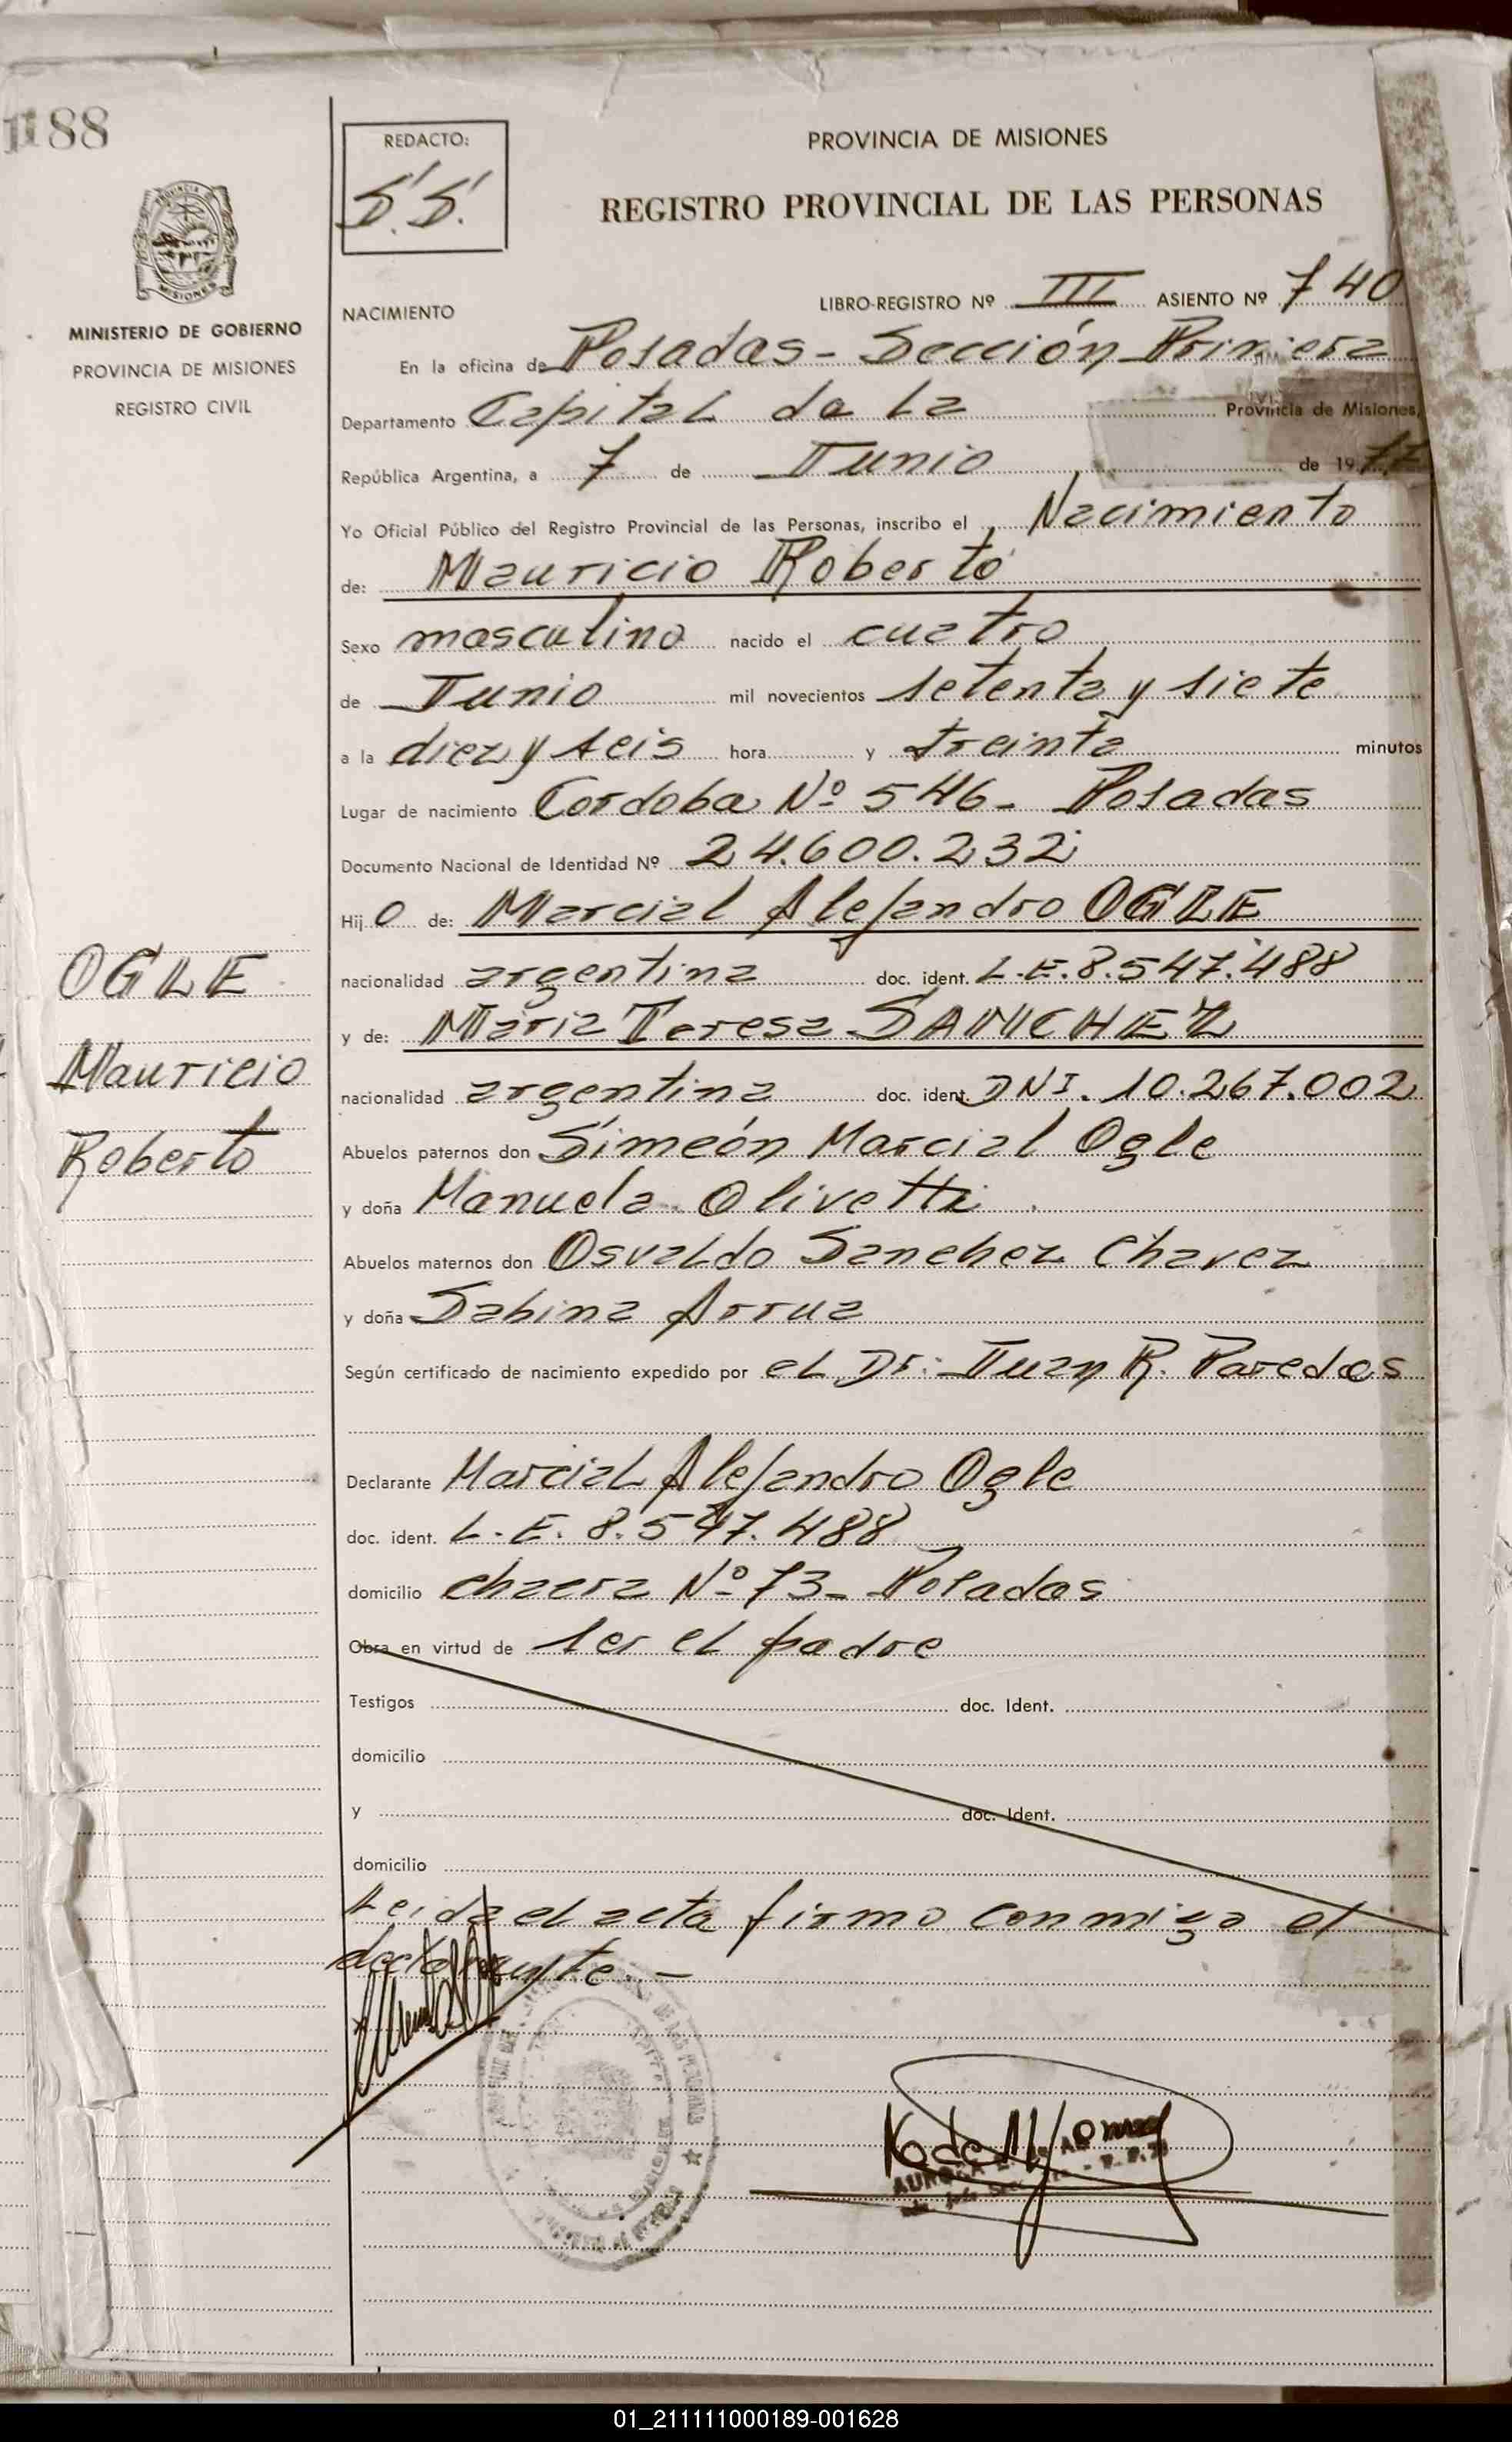 188
REDACTO:
S.S.
PROVINCIA DE MISIONES
REGISTRO PROVINCIAL DE LAS PERSONAS
MISIONES
MINISTERIO DE GOBIERNO
PROVINCIA DE MISIONES
REGISTRO CIVIL
LIBRO-REGISTRO Nº III ASIENTO Nº 740
NACIMIENTO
En la oficina de Posadas - Sección Primera
Departamento Capital de la Provincia de Misiones,
República Argentina, a 7 de Junio de 1977
Yo Oficial Público del Registro Provincial de las Personas, inscribo el Nacimiento
de: Mauricio Roberto
Sexo masculino nacido el cuatro
de Junio mil novecientos setenta y siete
a la diez y seis hora y treinta minutos
Lugar de nacimiento Cordoba Nº 546 - Posadas
Documento Nacional de Identidad Nº 24.600.232
Hij o de: Marcial Alejandro OGLE
nacionalidad argentina doc. ident. L.E. 8.547.488
y de: María Teresa SANCHEZ
nacionalidad argentina doc. ident. DNI. 10.267.002
Abuelos paternos don Simeón Marcial Ogle
y doña Manuela Olivetti
Abuelos maternos don Osvaldo Sanchez Chavez
y doña Sabina Arrua
Según certificado de nacimiento expedido por el Dr: Juan R. Paredes
Declarante Marcial Alejandro Ogle
doc. ident. L.E. 8.547.488
domicilio chacra Nº 73 - Posadas
Obra en virtud de ser el padre
Testigos doc. Ident.
domicilio
y doc. Ident.
domicilio
Leida el acta firmo conmigo el
declarante. -
OGLE
Mauricio
Roberto
01_211111000189-001628